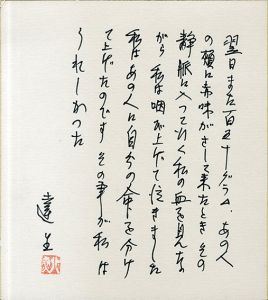 翌日また百五十グラム、あの人
の頬に赤味がさして来たときその
静脈に入っていく私の血を見な
がら私は咽び上げて泣きました
私はあの人に自分の命を分け
て上げたのです その事が私は
うれしかった
達生